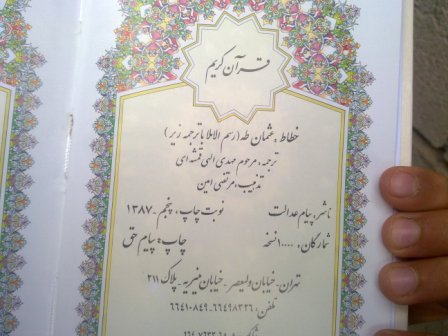 قرآن کریم
خطاط: عثمان طه (رسم الاملا با ترجمه زیر)
ترجمه: مرحوم مهدی الهی قمشه ای
تذهیب: مرتضی امین
ناشر: پیام عدالت نوبت چاپ: پنجم - ۱۳۸۷
شمارگان: ۱۰۰۰۰ نسخه چاپ: پیام حق
تهران - خیابان ولیعصر - خیابان منیریه - پلاک ۲۱۱
تلفن: ۶۶۴۹۸۳۳۶ - ۶۶۴۱۰۸۴۹